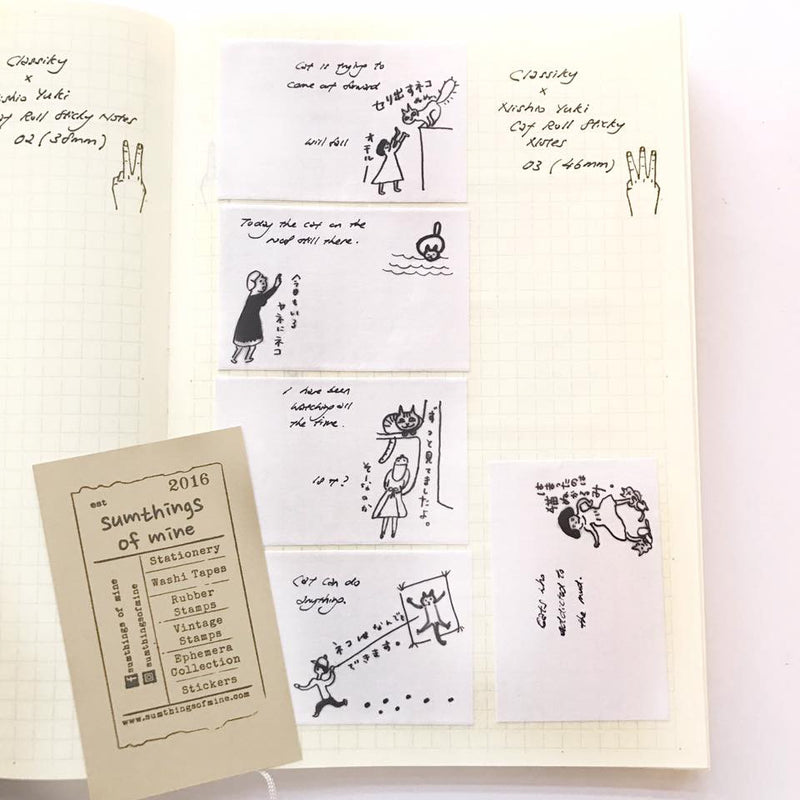 Classiky
x
Nishio Yuki
Cat Roll Sticky Notes
02 (38mm)
Cat is trying to
come out forward
セリ出すネコ
will fall
オチルー
Today the cat on the
roof still there.
今日もいる
ヤネにネコ
I have been
watching all
the time.
ずっと見てましたよ。
is it?
そーなのか
Cat can do
anything.
ネコはなんでも
できます。
Classiky
x
Nishio Yuki
Cat Roll Sticky
Notes
03 (46mm)
Cats who
addicted to
the mud.
est 2016
sumthings
of mine
Stationery
Washi Tapes
Rubber
Stamps
Vintage
Stamps
Ephemera
Collection
Stickers
sumthings of mine
sumthingsofmine
www.sumthingsofmine.com